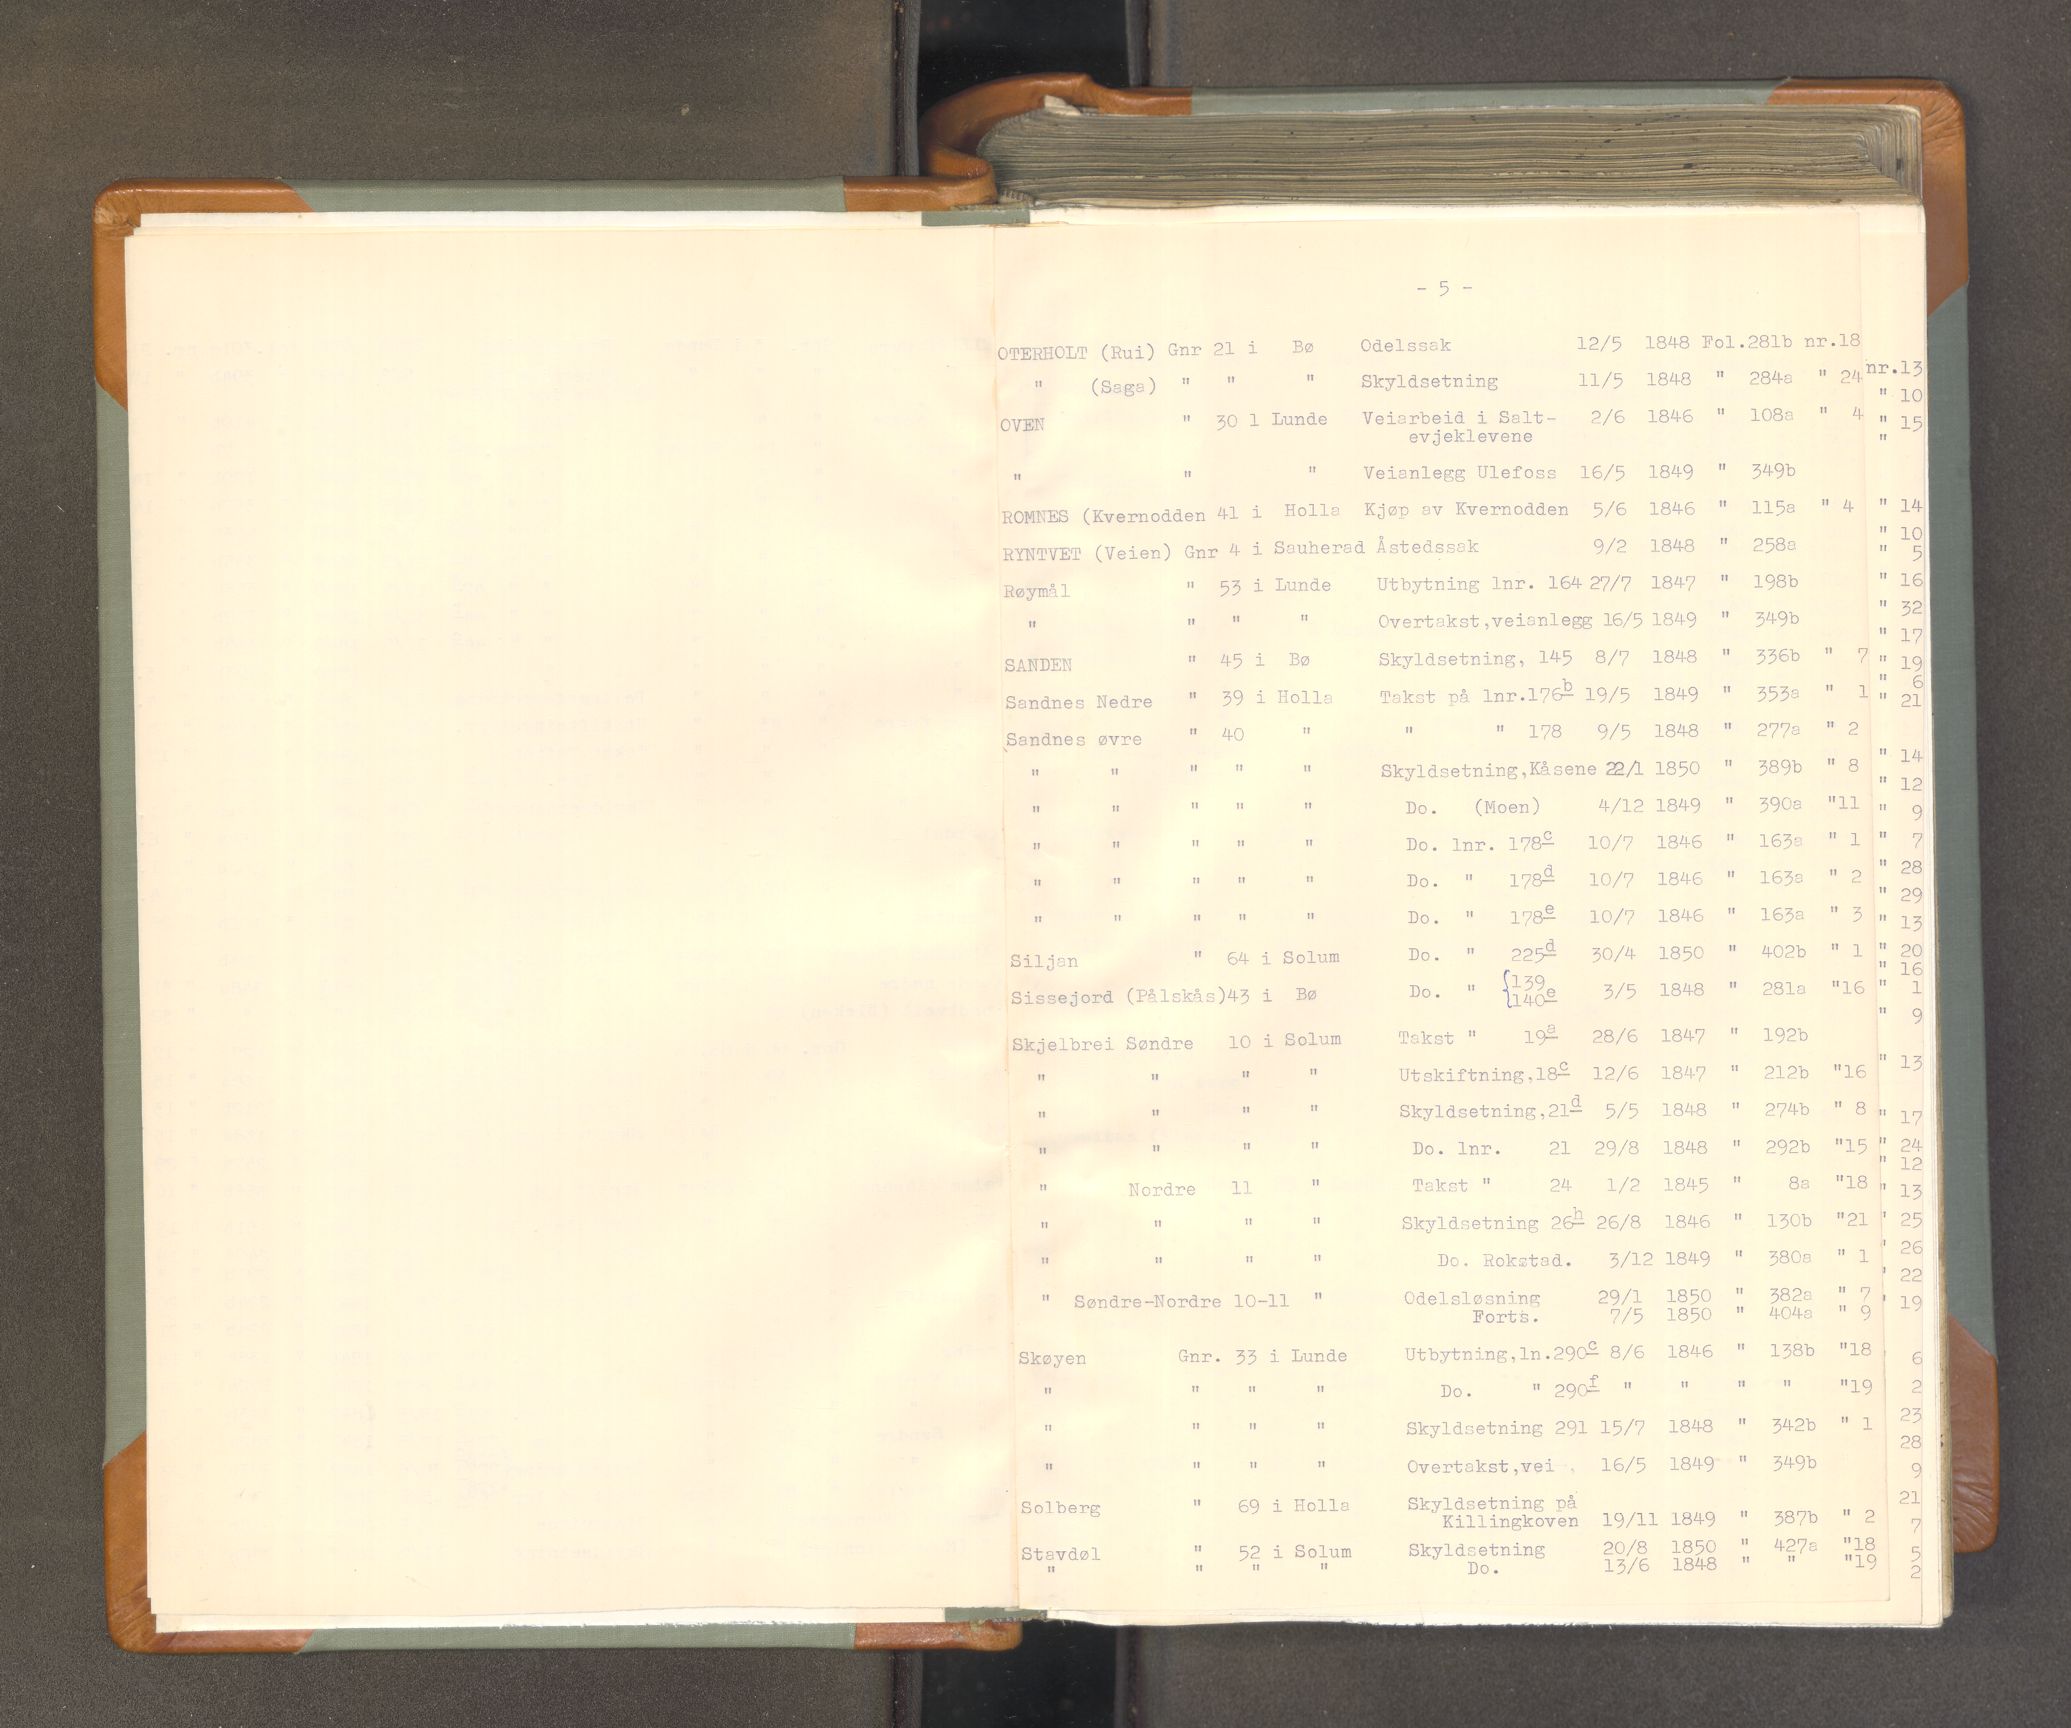 - 5 -
OTERHOLT (Rui) Gnr 21 i Bø Odelssak 12/5 1848 Fol.281b nr.18
" (Saga) " " " Skyldsetning 11/5 1848 " 284a " 24
OVEN " 30 l Lunde Veiarbeid i Salt- 2/6 1846 " 108a " 4
evjeklevene
" " " Veianlegg Ulefoss 16/5 1849 " 349b
ROMNES (Kvernodden 41 i Holla Kjøp av Kvernodden 5/6 1846 " 115a " 4
RYNTVET (Veien) Gnr 4 i Sauherad Åstedssak 9/2 1848 " 258a
Røymål " 53 i Lunde Utbytning lnr. 164 27/7 1847 " 198b
" " " " Overtakst,veianlegg 16/5 1849 " 349b
SANDEN " 45 i Bø Skyldsetning, 145 8/7 1848 " 336b " 7
Sandnes Nedre " 39 i Holla Takst på lnr.176b 19/5 1849 " 353a " 1
Sandnes øvre " 40 " " " 178 9/5 1848 " 277a " 2
" " " " " Skyldsetning,Kåsene 22/1 1850 " 389b " 8
" " " " " Do. (Moen) 4/12 1849 " 390a "11
" " " " " Do. lnr. 178c 10/7 1846 " 163a " 1
" " " " " Do. " 178d 10/7 1846 " 163a " 2
" " " " " Do. " 178e 10/7 1846 " 163a " 3
Siljan " 64 i Solum Do. " 225d 30/4 1850 " 402b " 1
Sissejord (Pålskås)43 i Bø Do. " {139 3/5 1848 " 281a "16
140e
Skjelbrei Søndre 10 i Solum Takst " 19a 28/6 1847 " 192b
" " " " Utskiftning,18c 12/6 1847 " 212b "16
" " " " Skyldsetning,21d 5/5 1848 " 274b " 8
" " " " Do. lnr. 21 29/8 1848 " 292b "15
" Nordre 11 " Takst " 24 1/2 1845 " 8a "18
" " " " Skyldsetning 26h 26/8 1846 " 130b "21
" " " " Do. Rokstad. 3/12 1849 " 380a " 1
" Søndre-Nordre 10-11 " Odelsløsning 29/1 1850 " 382a " 7
Forts. 7/5 1850 " 404a " 9
Skøyen Gnr. 33 i Lunde Utbytning,ln.290c 8/6 1846 " 138b "18
" " " " Do. " 290f " " " " "19
" " " " Skyldsetning 291 15/7 1848 " 342b " 1
" " " " Overtakst,vei , 16/5 1849 " 349b
Solberg " 69 i Holla Skyldsetning på
Killingkoven 19/11 1849 " 387b " 2
Stavdøl " 52 i Solum Skyldsetning 20/8 1850 " 427a "18
" " " " Do. 13/6 1848 " " "19
nr.13
" 10
" 15
"
" 14
" 10
" 5
" 16
" 32
" 17
" 19
" 6
" 21
" 14
" 12
" 9
" 7
" 28
" 29
" 13
" 20
" 16
" 1
" 9
" 13
" 17
" 24
" 12
" 13
' 25
' 26
' 22
' 19
6
2
23
28
9
21
7
5
2